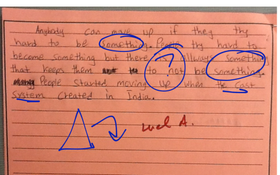 Anybody can move up if they try
hard to be something. People try hard to
become something but there is always something
that keeps them to not be something.
People started moving up when the cast
system created in India.
A.